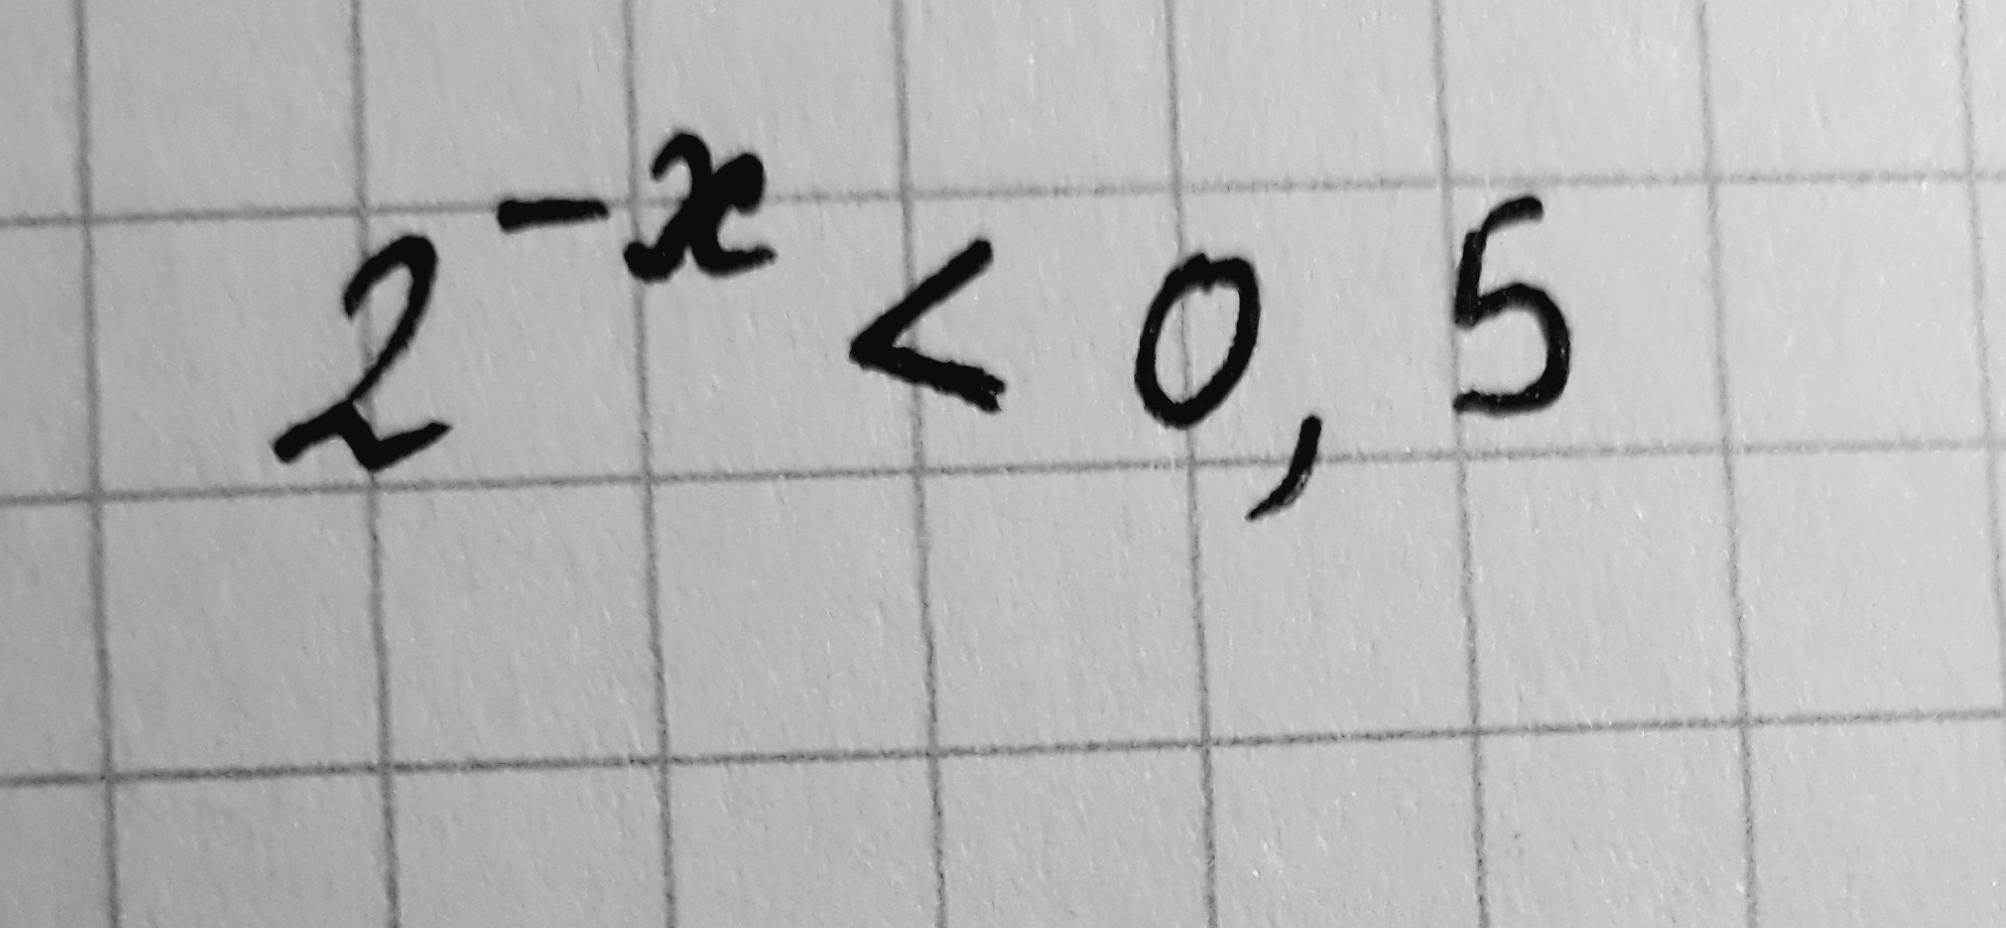 2^{-x} < 0,5